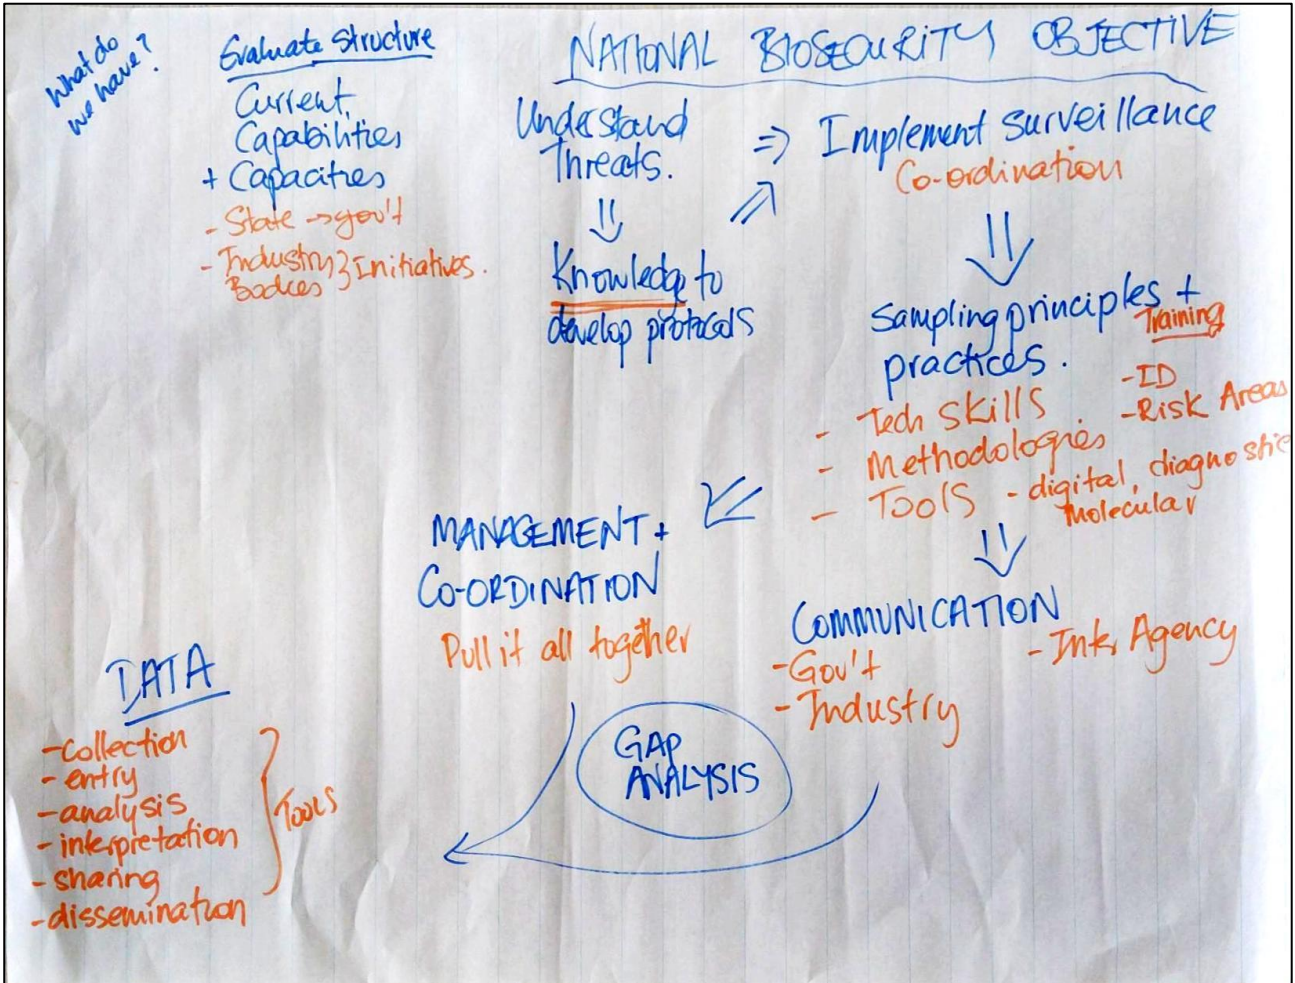 What do
we have?
Evaluate Structure
Current
Capabilities
+ Capacities
- State → gov't
- Industry } Initiatives.
Bodies
NATIONAL BIOSECURITY OBJECTIVE
Understand
Threats.
⇓
Knowledge to
develop protocols
⇒ Implement surveillance
Co-ordination
⇓
Sampling principles +
Training
practices.
- ID
- Risk Areas
- Tech Skills
- Methodologies
- Tools - digital, diagnostic
Molecular
MANAGEMENT +
CO-ORDINATION
Pull it all together
COMMUNICATION
- Gov't
- Industry
- Inter Agency
GAP
ANALYSIS
DATA
- collection
- entry
- analysis
- interpretation
- sharing
- dissemination
} Tools